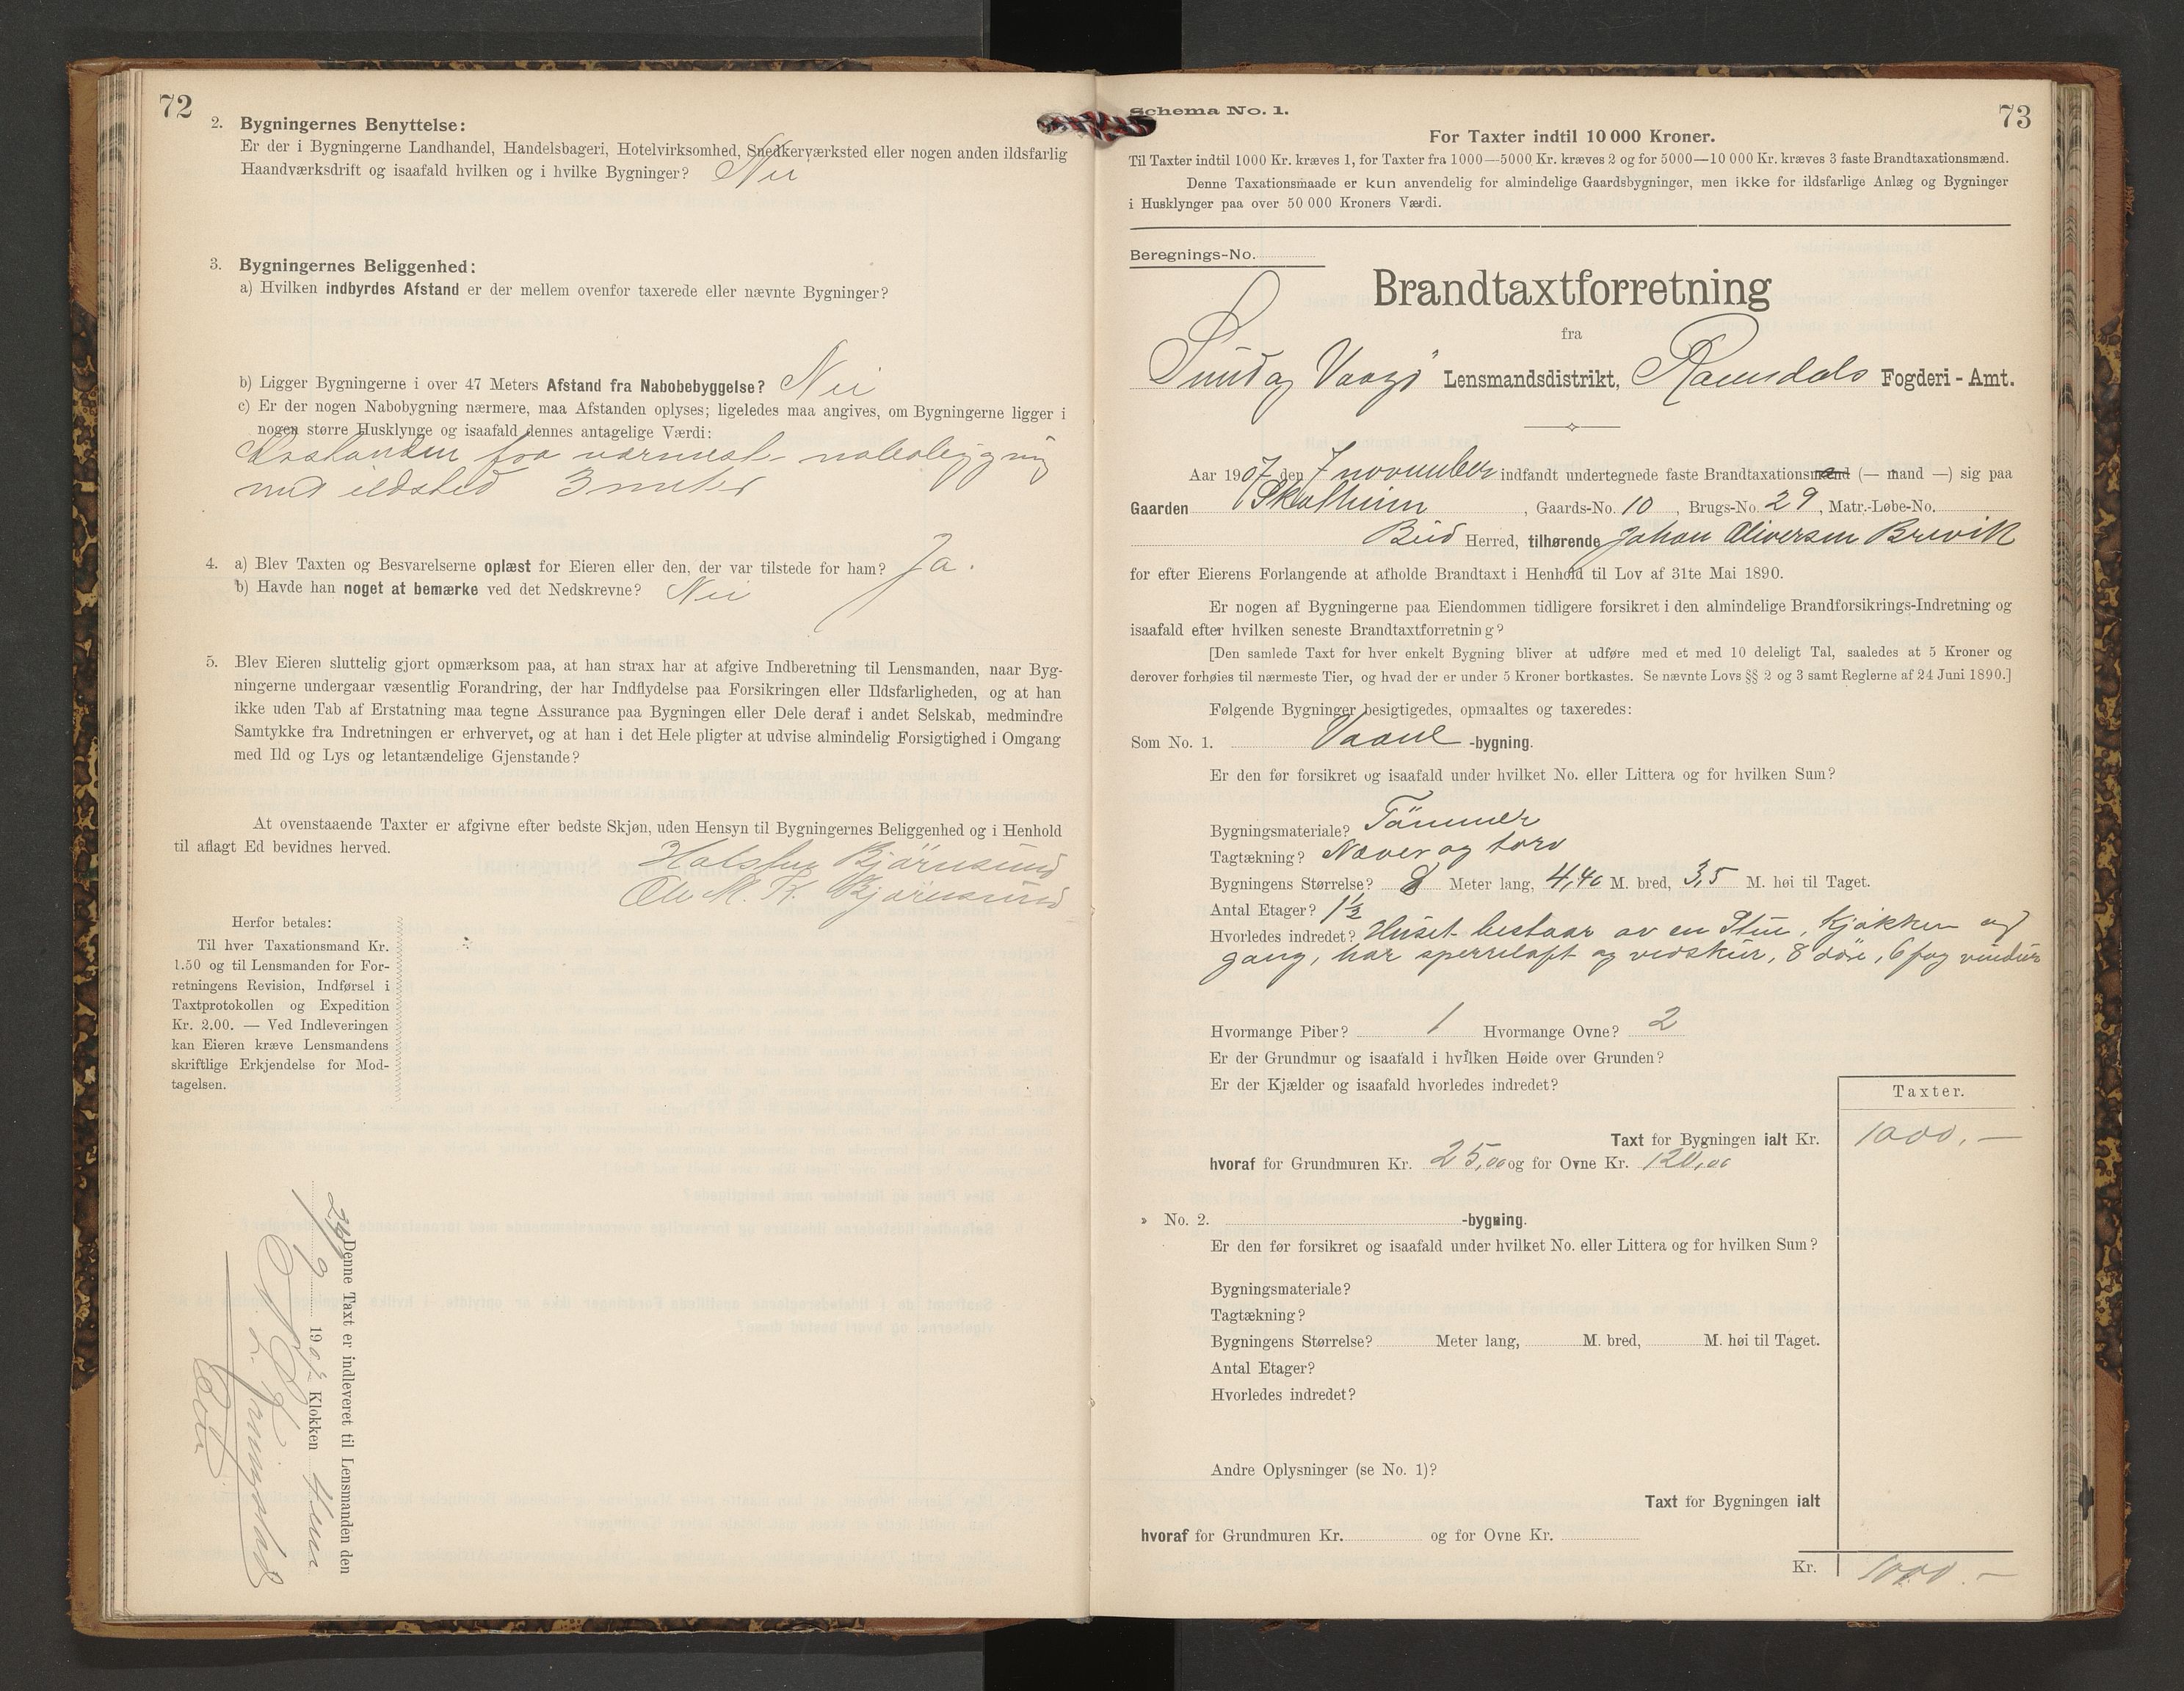 72
2. Bygningernes Benyttelse:
Er der i Bygningerne Landhandel, Handelsbageri, Hotelvirksomhed, Snedkerværksted eller nogen anden ildsfarlig
Haandværksdrift og isaafald hvilken og i hvilke Bygninger? Nei
3. Bygningernes Beliggenhed:
a) Hvilken indbyrdes Afstand er der mellem ovenfor taxerede eller nævnte Bygninger?
b) Ligger Bygningerne i over 47 Meters Afstand fra Nabobebyggelse? Nei
c) Er der nogen Nabobygning nærmere, maa Afstanden oplyses; ligeledes maa angives, om Bygningerne ligger i
nogen større Husklynge og isaafald dennes antagelige Værdi:
Avstanden fra nærmest nabobygning
med ildsted 3 meter
4. a) Blev Taxten og Besvarelserne oplæst for Eieren eller den, der var tilstede for ham? Ja.
b) Havde han noget at bemærke ved det Nedskrevne? Nei
5. Blev Eieren sluttelig gjort opmærksom paa, at han strax har at afgive Indberetning til Lensmanden, naar Byg-
ningerne undergaar væsentlig Forandring, der har Indflydelse paa Forsikringen eller Ildsfarligheden, og at han
ikke uden Tab af Erstatning maa tegne Assurance paa Bygningen eller Dele deraf i andet Selskab, medmindre
Samtykke fra Indretningen er erhvervet, og at han i det Hele pligter at udvise almindelig Forsigtighed i Omgang
med Ild og Lys og letantændelige Gjenstande?
At ovenstaaende Taxter er afgivne efter bedste Skjøn, uden Hensyn til Bygningernes Beliggenhed og i Henhold
til aflagt Ed bevidnes herved.
Bjørnsund
Ole M. K. Bjørnsund
Herfor betales:
Til hver Taxationsmand Kr.
1.50 og til Lensmanden for For-
retningens Revision, Indførsel i
Taxtprotokollen og Expedition
Kr. 2.00. — Ved Indleveringen
kan Eieren kræve Lensmandens
skriftlige Erkjendelse for Mod-
tagelsen.
Denne Taxt er indleveret til Lensmanden den
1907 Klokken
73
Schema No. 1.
For Taxter indtil 10 000 Kroner.
Til Taxter indtil 1000 Kr. kræves 1, for Taxter fra 1000—5000 Kr. kræves 2 og for 5000—10 000 Kr. kræves 3 faste Brandtaxationsmænd.
Denne Taxationsmaade er kun anvendelig for almindelige Gaardsbygninger, men ikke for ildsfarlige Anlæg og Bygninger
i Husklynger paa over 50 000 Kroners Værdi.
Beregnings-No.
Brandtaxtforretning
fra
Bud og Vaagø Lensmandsdistrikt, Romsdals Fogderi - Amt.
Aar 1907 den 7 november indfandt undertegnede faste Brandtaxationsmænd (— mand —) sig paa
Gaarden Skotheim, Gaards-No. 10, Brugs-No. 29, Matr.-Løbe-No.
Bud Herred, tilhørende Johan Oliversen Brevik
for efter Eierens Forlangende at afholde Brandtaxt i Henhold til Lov af 31te Mai 1890.
Er nogen af Bygningerne paa Eiendommen tidligere forsikret i den almindelige Brandforsikrings-Indretning og
isaafald efter hvilken seneste Brandtaxtforretning?
[Den samlede Taxt for hver enkelt Bygning bliver at udføre med et med 10 deleligt Tal, saaledes at 5 Kroner og
derover forhøies til nærmeste Tier, og hvad der er under 5 Kroner bortkastes. Se nævnte Lovs §§ 2 og 3 samt Reglerne af 24 Juni 1890.]
Følgende Bygninger besigtigedes, opmaaltes og taxeredes:
Som No. 1. Vaane-bygning.
Er den før forsikret og isaafald under hvilket No. eller Littera og for hvilken Sum?
Bygningsmateriale? Tömmer
Tagtækning? Næver og torv
Bygningens Størrelse? 8 Meter lang, 4,40 M. bred, 3,5 M. høi til Taget.
Antal Etager? 1½
Hvorledes indredet? Huset bestaar av en Stue, Kjøkken og
gang, har sperreloft og vedskur, 8 døre, 6 fag vinduer
Hvormange Piber? 1 Hvormange Ovne? 2
Er der Grundmur og isaafald i hvilken Høide over Grunden?
Er der Kjælder og isaafald hvorledes indredet?
Taxter.
Taxt for Bygningen ialt Kr. 1000,—
hvoraf for Grundmuren Kr. 25,00 og for Ovne Kr. 120,00
» No. 2. -bygning.
Er den før forsikret og isaafald under hvilket No. eller Littera og for hvilken Sum?
Bygningsmateriale?
Tagtækning?
Bygningens Størrelse? Meter lang, M. bred, M. høi til Taget.
Antal Etager?
Hvorledes indredet?
Andre Oplysninger (se No. 1)?
Taxt for Bygningen ialt
hvoraf for Grundmuren Kr. og for Ovne Kr.
Kr. 1000.—